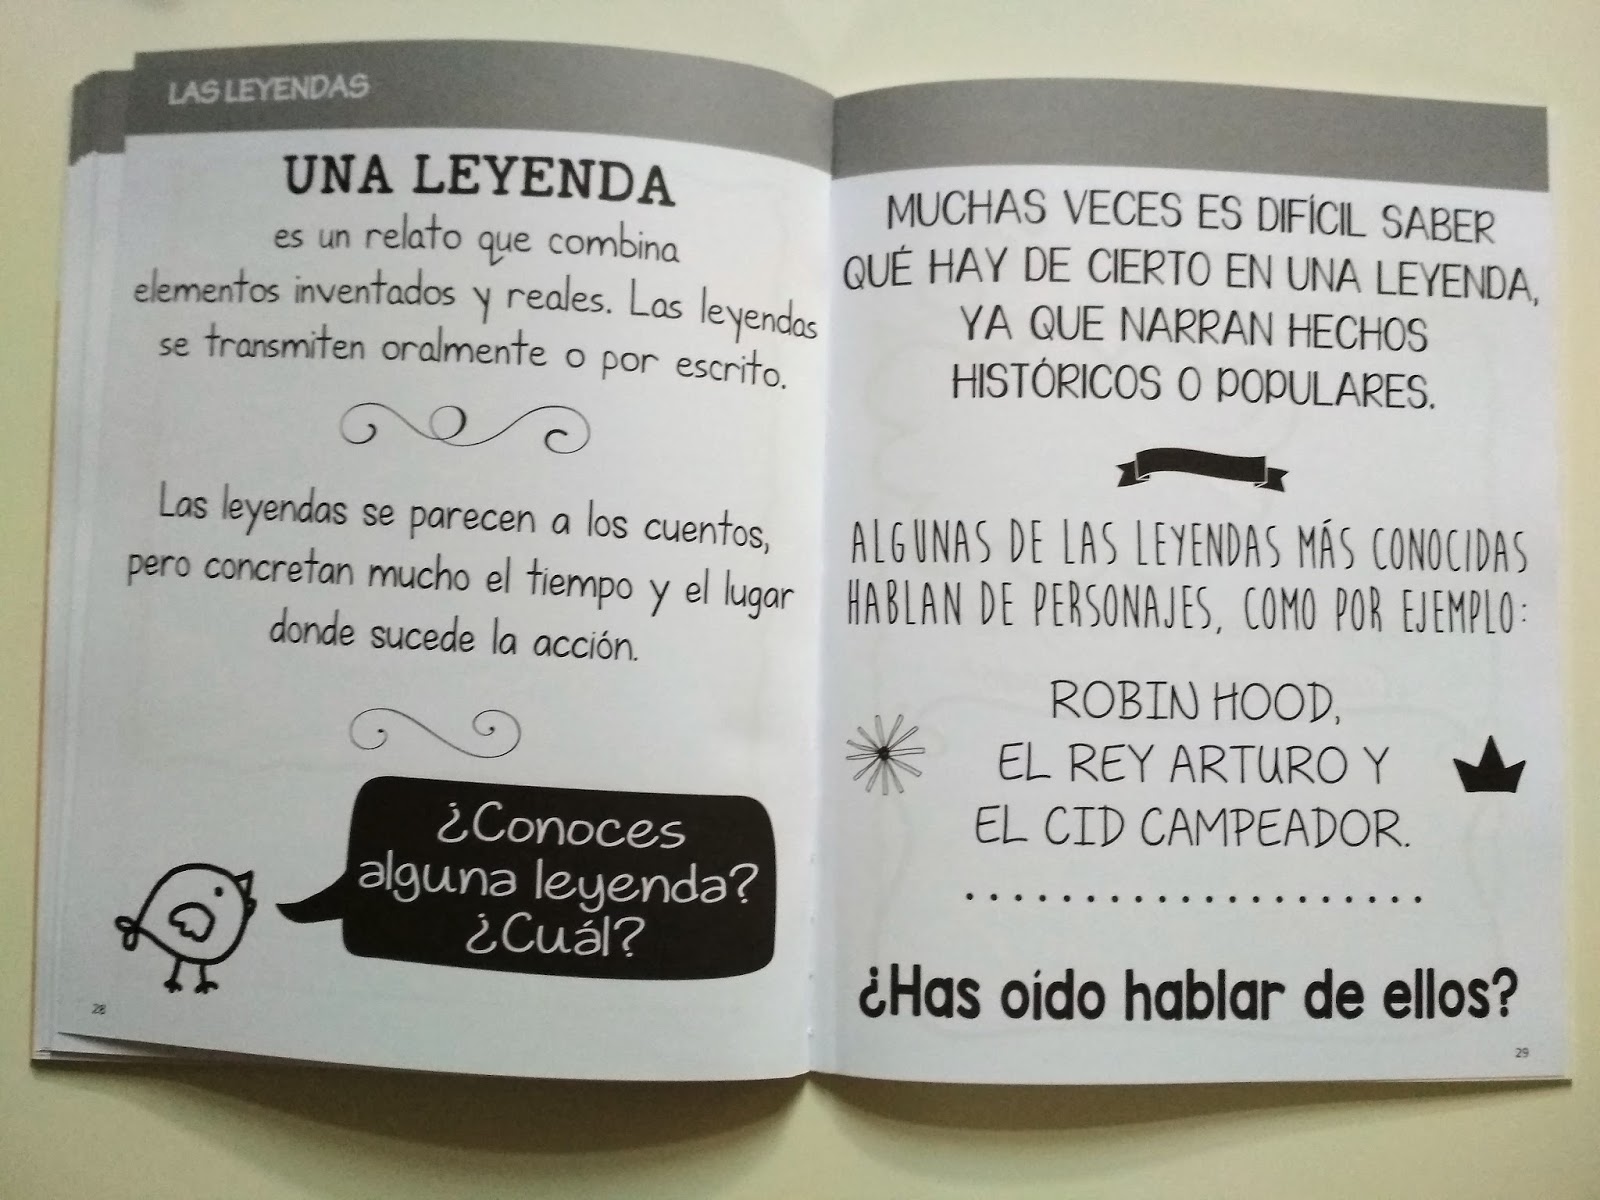 LAS LEYENDAS
UNA LEYENDA
es un relato que combina
elementos inventados y reales. Las leyendas
se transmiten oralmente o por escrito.
Las leyendas se parecen a los cuentos,
pero concretan mucho el tiempo y el lugar
donde sucede la acción.
¿Conoces
alguna leyenda?
¿Cuál?
28
MUCHAS VECES ES DIFÍCIL SABER
QUÉ HAY DE CIERTO EN UNA LEYENDA,
YA QUE NARRAN HECHOS
HISTÓRICOS O POPULARES.
ALGUNAS DE LAS LEYENDAS MÁS CONOCIDAS
HABLAN DE PERSONAJES, COMO POR EJEMPLO:
ROBIN HOOD,
EL REY ARTURO Y
EL CID CAMPEADOR.
¿Has oído hablar de ellos?
29